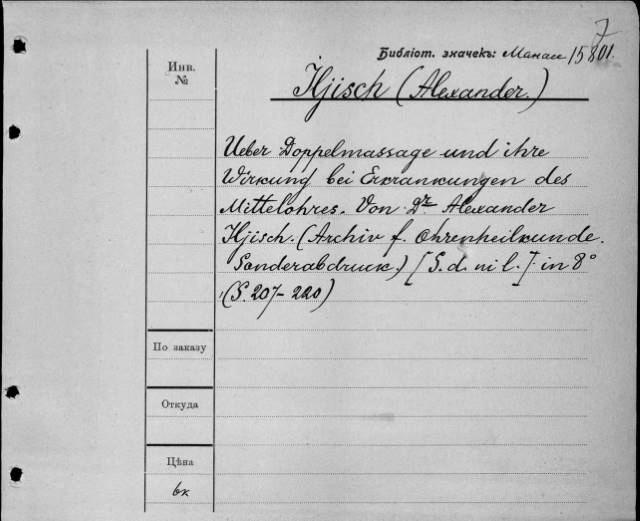 7
Библіот. значекъ: Манаи 15801.
Инв.
№
Iljisch (Alexander.)
Ueber Doppelmassage und ihre
Wirkung bei Erkrankungen des
Mittelohres. Von Dr Alexander
Iljisch. (Archiv f. Ohrenheilkunde.
Sonderabdruck.) [S. d. ni l.] in 8°
(S. 207-220)
По заказу
Откуда
Цѣна
бк